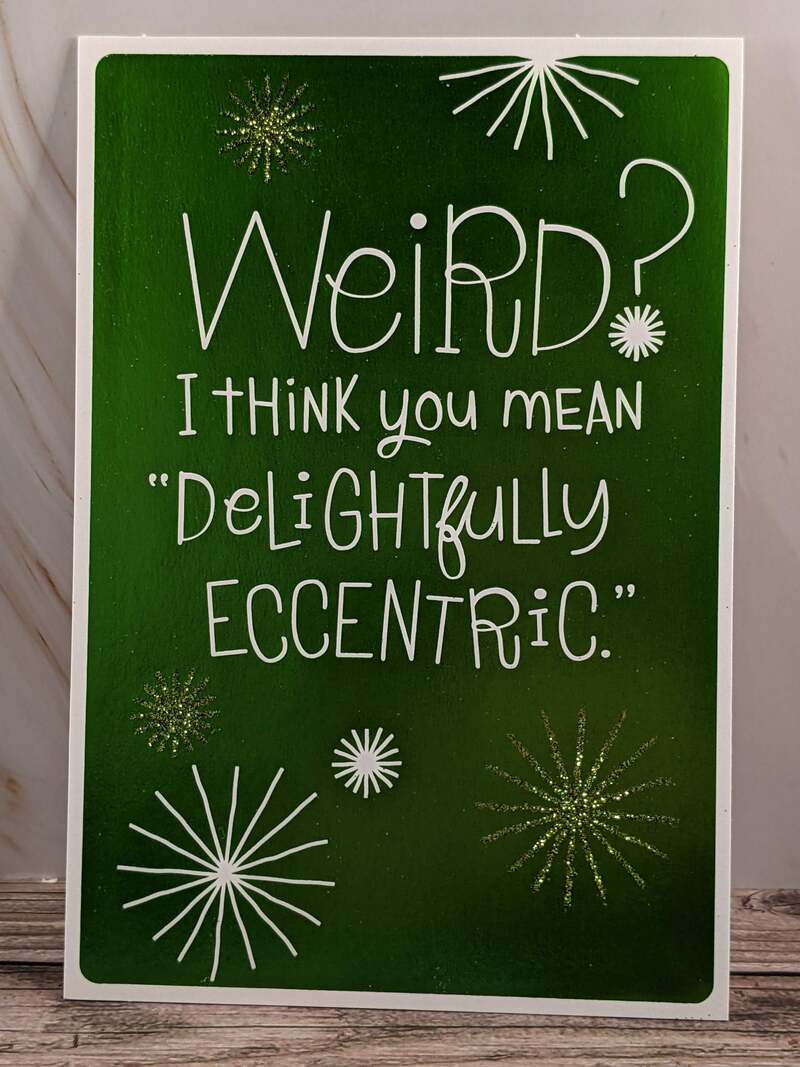 WeiRD?
I tHiNK you mEAN
“DeLiGHTfULLy
ECCENTRiC.”